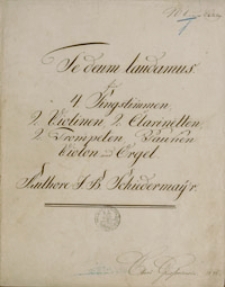 Te deum laudamus
4 Singstimmen,
2 Violinen, 2 Clarinetten,
2 Trompeten Pauken
Violon u Orgel.
Authore J. B. Schiedermayr.